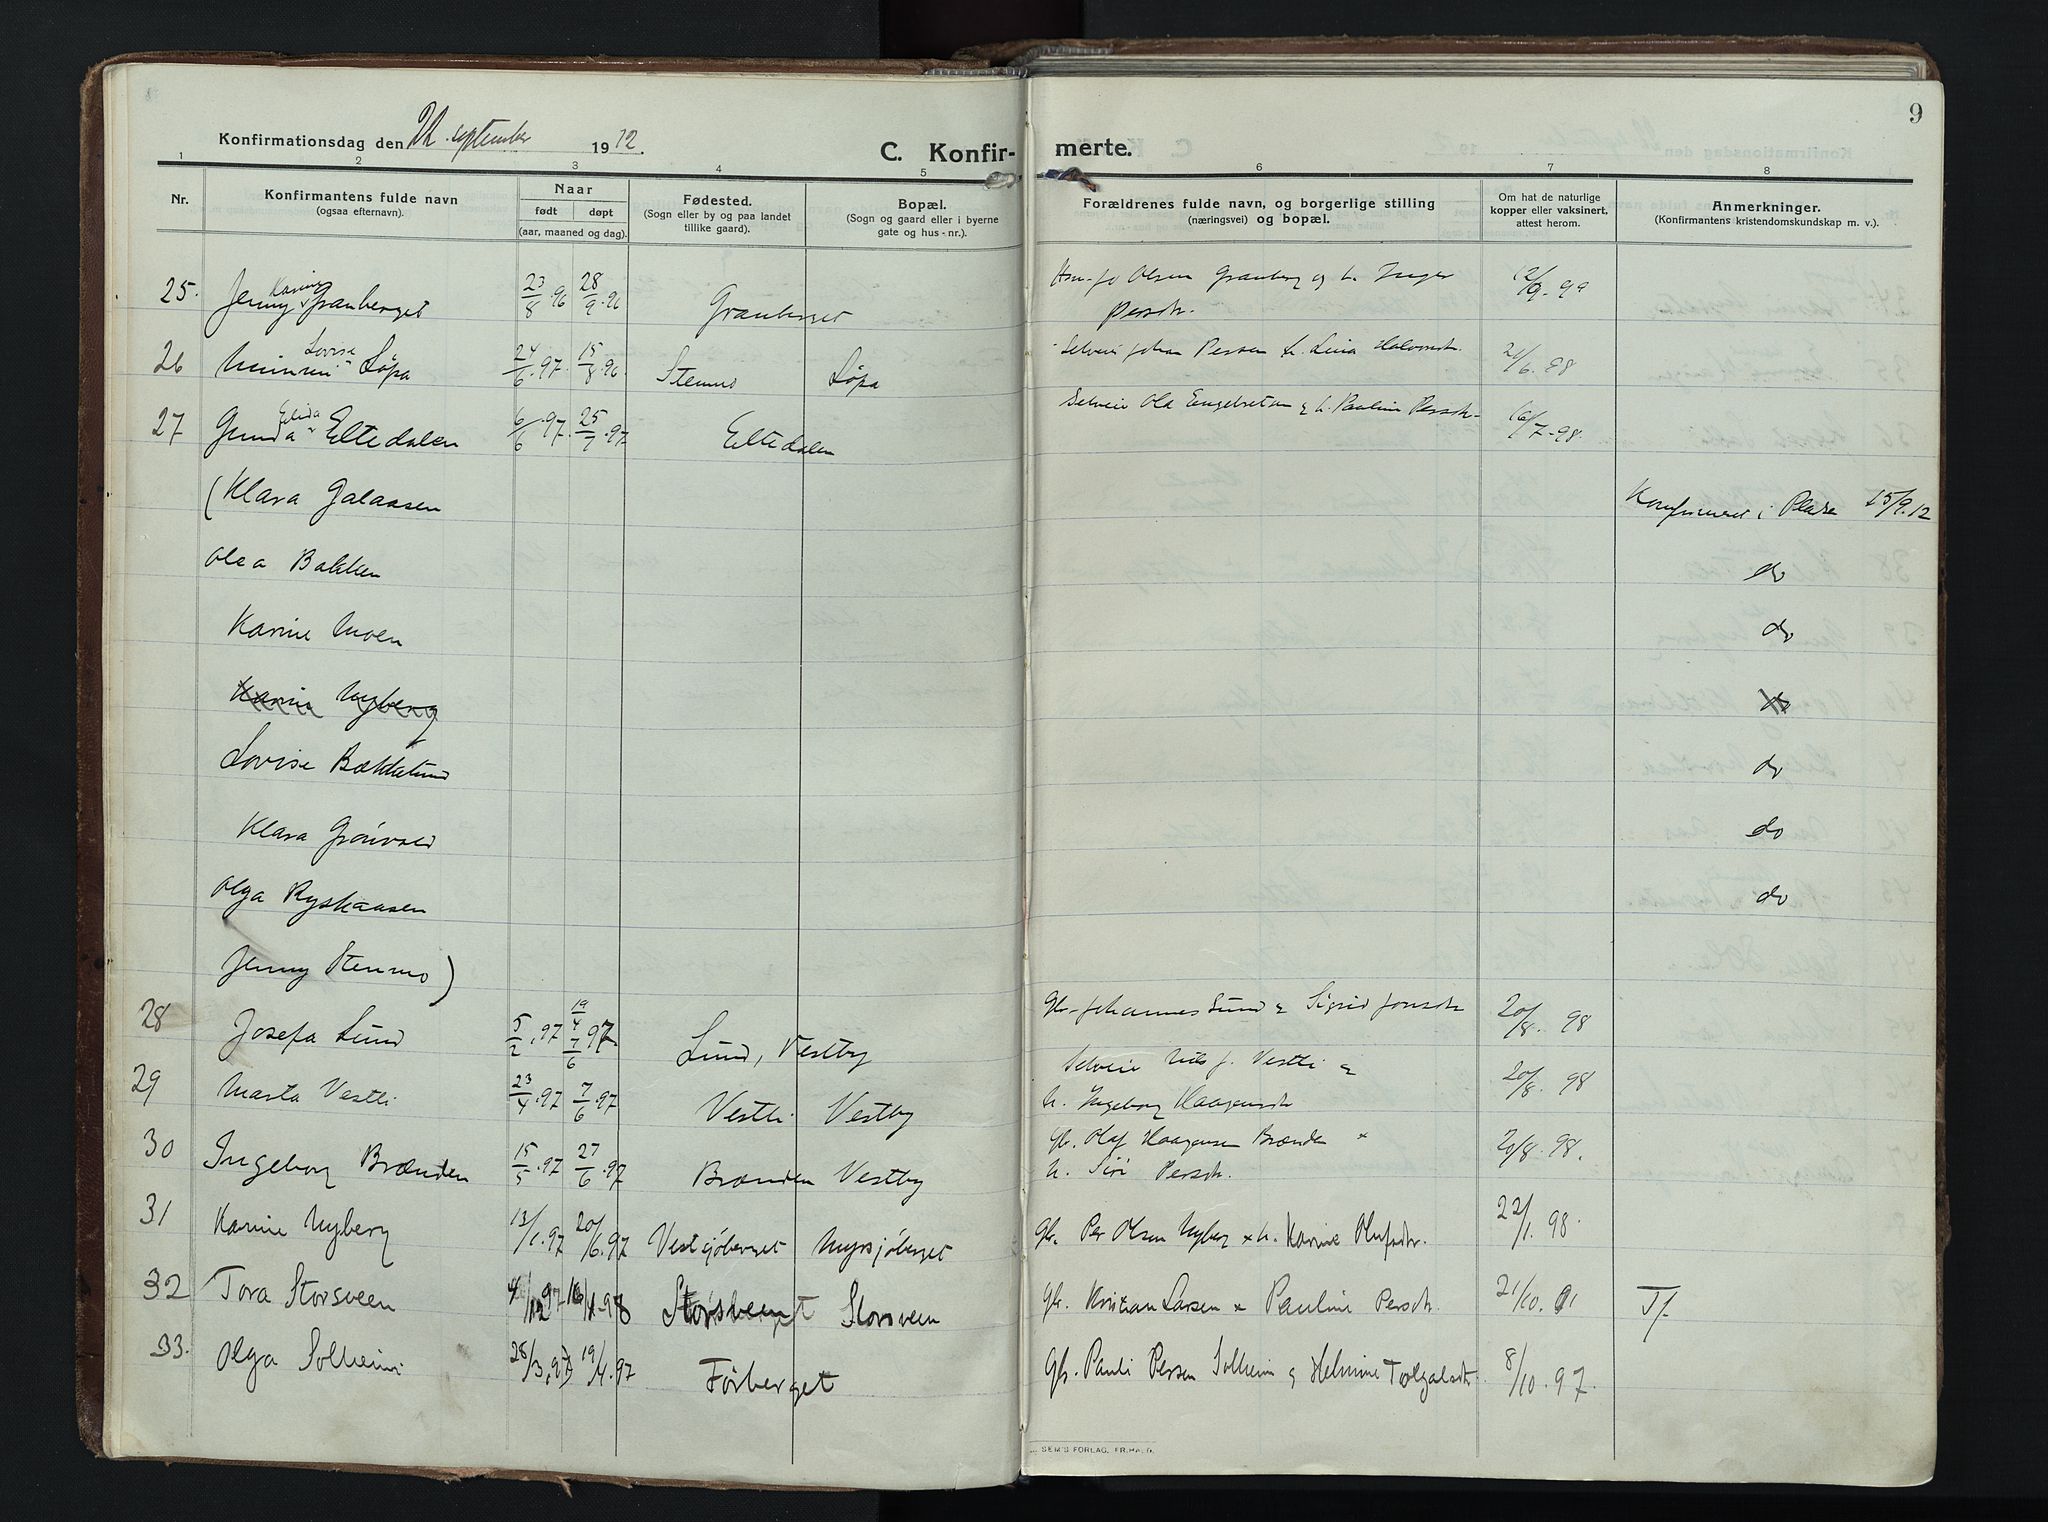 9
Konfirmationsdag den september 1912.
C. Konfir- merte.
1 2 3 4 5 6 7 8
Nr.
Konfirmantens fulde navn
(ogsaa efternavn).
Naar
født døpt
(aar, maaned og dag).
Fødested.
(Sogn eller by og paa landet
tillike gaard).
Bopæl.
(Sogn og gaard eller i byerne
gate og hus-nr.).
Forældrenes fulde navn, og borgerlige stilling
(næringsvei) og bopæl.
Om hat de naturlige
kopper eller vaksinert,
attest herom.
Anmerkninger.
(Konfirmantens kristendomskundskap m. v.).
25. Jenny Karine Granberget 23/8.96 28/9.96 Granberget Olsen Granberg og h. Inger
Persdr.
26 Lovise Løpa 24/6.97 15/8.96 Stenmo Løpa Selveier Johan Persen h. Lina Halvorsdr. 21/6.98
27 Gunda Elida Eltedalen 6/6.97 25/7.97 Eltedalen Selveier Ole Engebretsen & h. Pauline Persdr. 16/7.98
(Klara Galaasen Konfirmeret i Plassen 15/9.12
Olea Bakken do
Karine Moen do
Karine Nyberg do
Lovise Bækkelund do
Klara Grønvold do
Olga Ryskaasen do
Jenny Stenmo)
28 Josefa Lund 5/2.97 19/4 97 7/6 Lund, Vestby Gbr. Johannes Lund & Sigrid Jonsdr 20/8.98
29 Marta Vestli 23/4.97 7/6.97 Vestli Vestby Selveier Nils J. Vestli & 20/8.98
h. Ingeborg Haagensdr
30 Ingeborg Brænden 15/5.97 27/6.97 Brænden Vestby Gbr. Olaf Haagensen Brænden & 20/8.98.
h. Siri Persdr.
31 Karine Nyberg 13/1.97 20/6.97 Vestsjøberget Myrsjøberget Gbr. Per Olsen Nyberg & h. Karine Olufsdr. 22/1.98.
32 Tora Storsveen 4/12 97 16/1.98 Storsveen Gbr. Kristian Larsen & Pauline Persdr. 21/10.
33. Olga Solheim 28/3.97 19/4.97 Førberget Gbr. Pauli Persen Solheim & Helmine 8/10.97.
SEM'S FORLAG, FR.HALD.